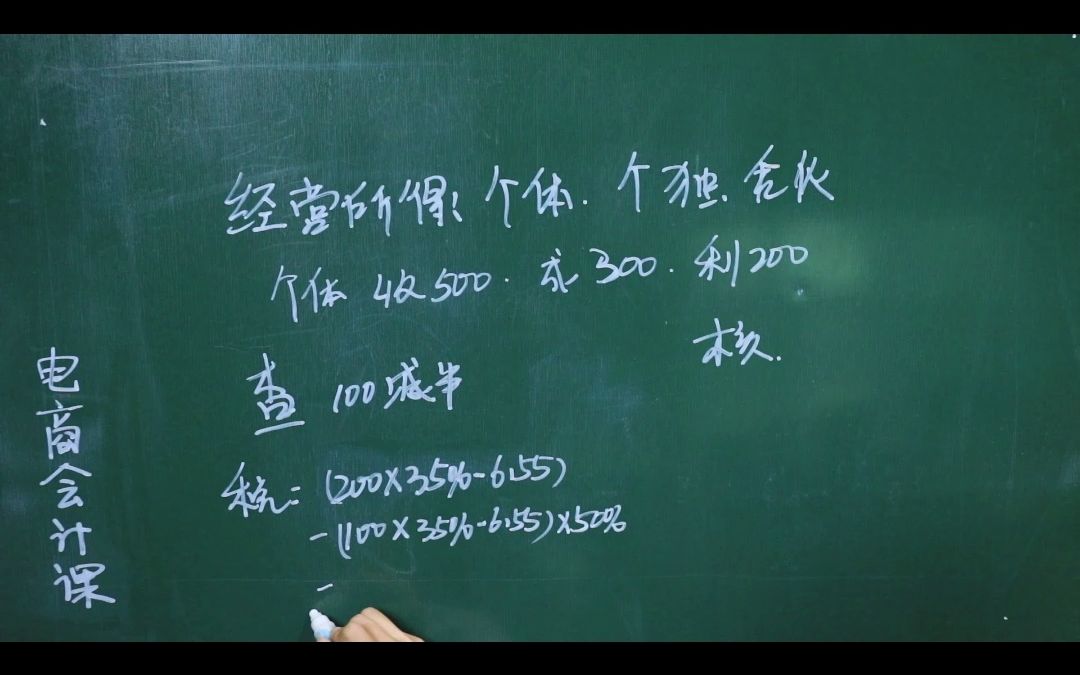 经营所得:个体.个独.合伙
个体 收500.成300.利200
核.
查 100减半
税=(200×35%-6.55)
-(100×35%-6.55)×50%
-
电商会计课